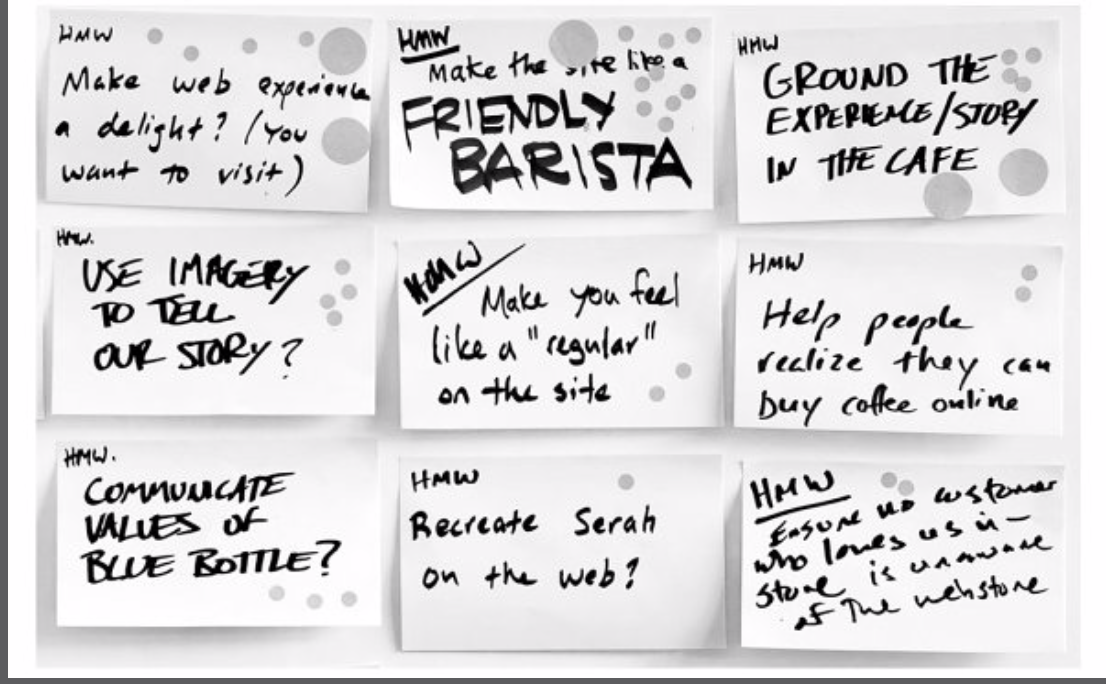 HMW
Make web experience
a delight? (you
want to visit)
HMW
Make the site like a
FRIENDLY
BARISTA
HMW
GROUND THE
EXPERIENCE/STORY
IN THE CAFE
HMW.
USE IMAGERY
TO TELL
OUR STORY?
HMW
Make you feel
like a "regular"
on the site
HMW
Help people
realize they can
buy coffee online
HMW.
COMMUNICATE
VALUES OF
BLUE BOTTLE?
HMW
Recreate Serah
on the web?
HMW
Ensure no customer
who loves us in-
store is unaware
of the webstore